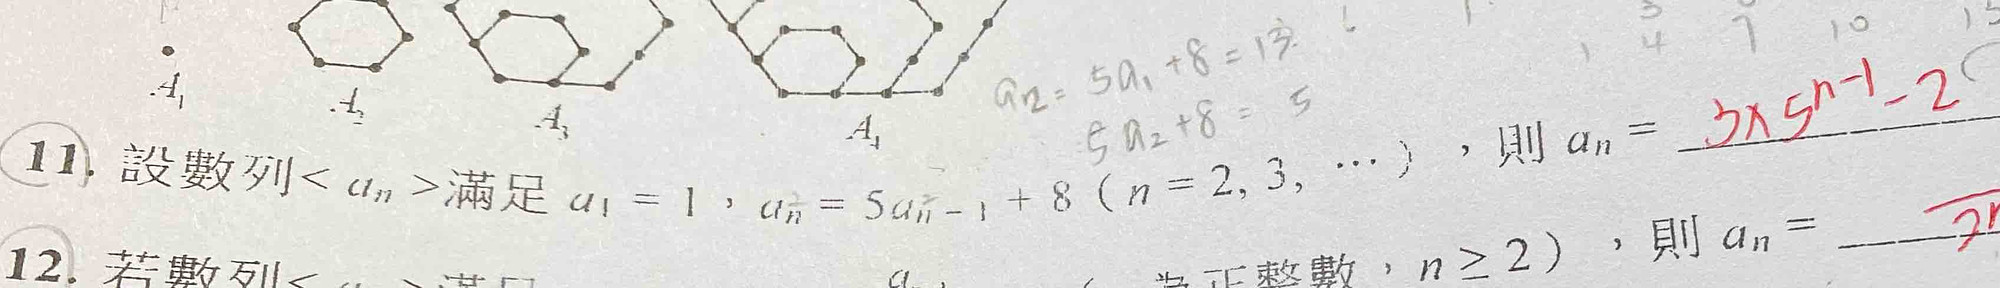 A₁
A₂
A₃
A₄
aₙ₂ = 5a₁+8 = 13
5a₂+8 = 5
1 4 7 10
11. 設數列< aₙ >滿足 a₁ = 1，aₙ = 5aₙ₋₁ + 8（n = 2, 3, …），則 aₙ = 3×5ⁿ⁻¹-2
12. 若數列< 滿足 為正整數，n ≥ 2），則 aₙ =